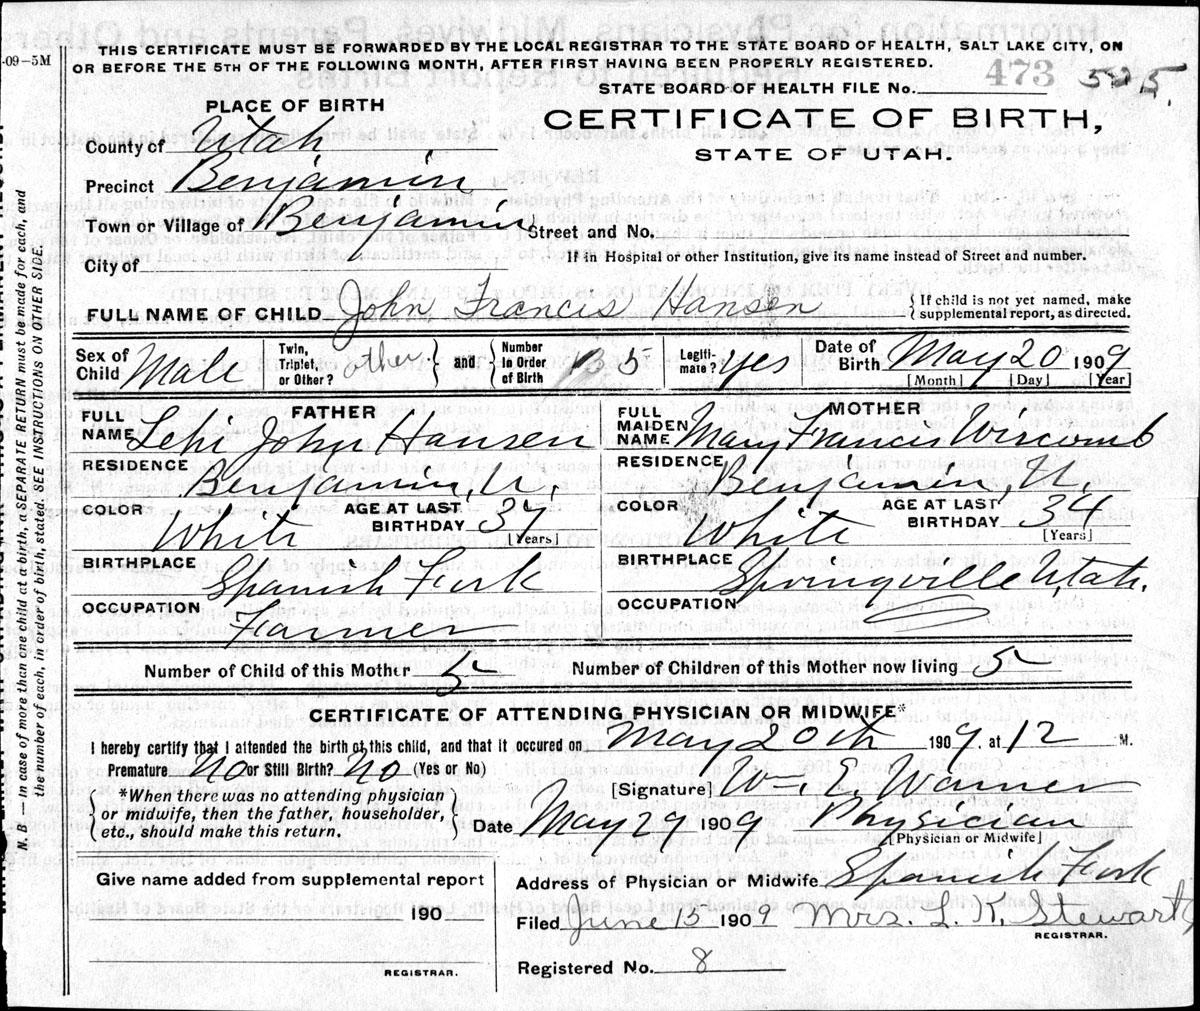 THIS CERTIFICATE MUST BE FORWARDED BY THE LOCAL REGISTRAR TO THE STATE BOARD OF HEALTH, SALT LAKE CITY, ON
-09-5M
OR BEFORE THE 5TH OF THE FOLLOWING MONTH, AFTER FIRST HAVING BEEN PROPERLY REGISTERED.
473 525.
STATE BOARD OF HEALTH FILE No.
PLACE OF BIRTH
CERTIFICATE OF BIRTH,
STATE OF UTAH.
County of Utah
Precinct Benjamin
Town or Village of Benjamin Street and No.
City of If in Hospital or other Institution, give its name instead of Street and number.
FULL NAME OF CHILD John Francis Hansen { If child is not yet named, make supplemental report, as directed.
Sex of Child Male Twin, Triplet, or Other? other } and { Number in Order of Birth 5 Legiti-mate? yes Date of Birth May 20 1909
[Month] [Day] [Year]
FATHER MOTHER
FULL NAME Lehi John Hansen FULL MAIDEN NAME Mary Francis Wiscomb
RESIDENCE Benjamin, U. RESIDENCE Benjamin, U.
COLOR White AGE AT LAST BIRTHDAY 37 [Years] COLOR White AGE AT LAST BIRTHDAY 34 [Years]
BIRTHPLACE Spanish Fork BIRTHPLACE Springville Utah.
OCCUPATION Farmer OCCUPATION
Number of Child of this Mother 5 Number of Children of this Mother now living 5
CERTIFICATE OF ATTENDING PHYSICIAN OR MIDWIFE*
I hereby certify that I attended the birth of this child, and that it occured on May 20th 1909. at 12 M.
Premature No or Still Birth? No (Yes or No)
[Signature] Wm. E. Warner
{ *When there was no attending physician or midwife, then the father, householder, etc., should make this return. }
Date May 29 1909 Physician
[Physician or Midwife]
Give name added from supplemental report
Address of Physician or Midwife Spanish Fork
190
Filed June 15 1909 Mrs. L. K. Stewart
REGISTRAR.
REGISTRAR.
Registered No. 8
N. B.—In case of more than one child at a birth, a SEPARATE RETURN must be made for each, and
the number of each, in order of birth, stated. SEE INSTRUCTIONS ON OTHER SIDE.